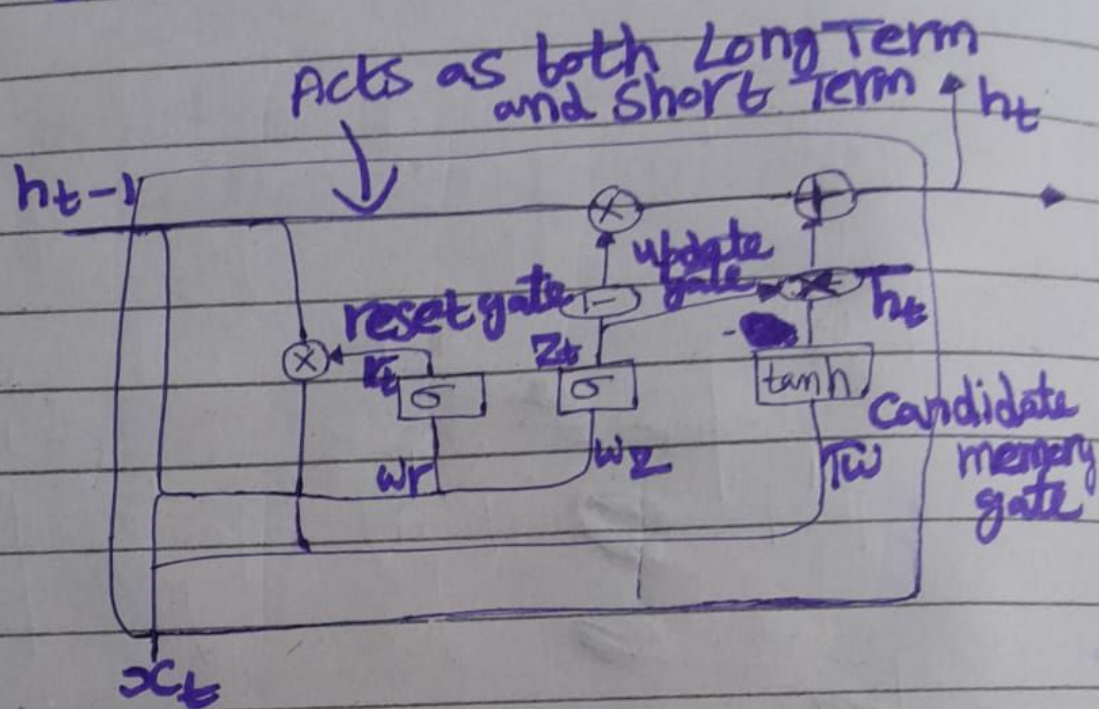 Acts as both Long Term
and Short Term
ht
ht-1
×
+
update
gate
reset gate
1-
×
h̅t
×
rt
σ
zt
σ
tanh
candidate
memory
gate
wr
wz
xt